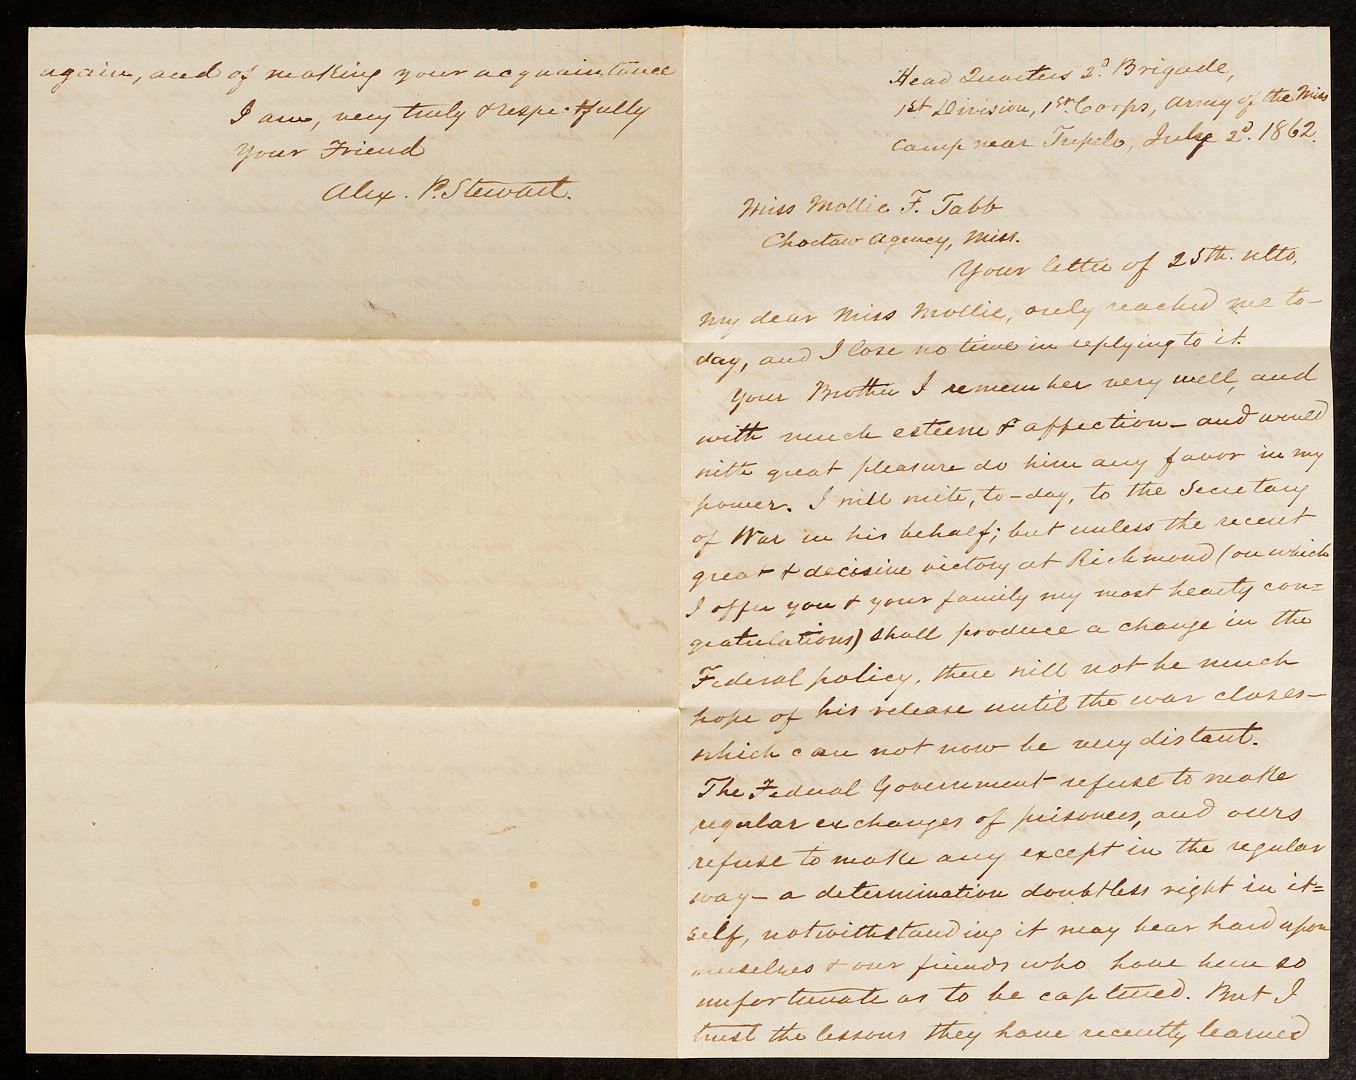 again, and of making your acquaintance
I am, very truly & respectfully
Your Friend
Alex. P. Stewart.
Head Quarters 2d. Brigade,
1st Division, 1st Corps, Army of the Miss
Camp near Tupelo, July 2d. 1862.
Miss Mollie F. Tabb
Choctaw Agency, Miss.
Your letter of 25th. ulto,
my dear Miss Mollie, only reached me to-
day, and I lose no time in replying to it.
Your Brother I remember very well, and
with much esteem & affection - and would
with great pleasure do him any favor in my
power. I will write, to-day, to the Secretary
of War in his behalf; but unless the recent
great & decisive victory at Richmond (on which
I offer you & your family my most hearty con=
gratulations) shall produce a change in the
Federal policy, there will not be much
hope of his release until the war closes-
which can not now be very distant.
The Federal Government refuse to make
regular exchanges of prisoners, and ours
refuse to make any except in the regular
way - a determination doubtless right in it=
self, notwithstanding it may bear hard upon
ourselves & our friends who have been so
unfortunate as to be captured. But I
trust the lessons they have recently learned